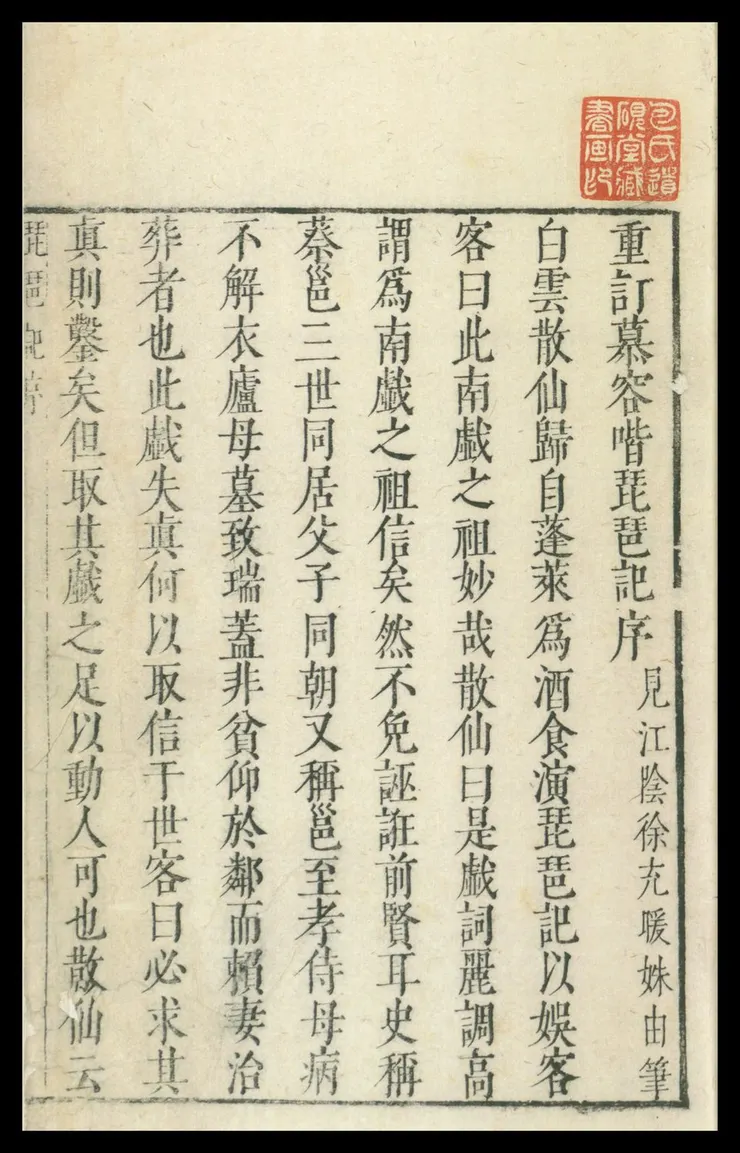 包氏遺
硯堂藏
書画印
重訂慕容喈琵琶記序 見江陰徐充暖姝由筆
白雲散仙歸自蓬萊爲酒食演琵琶記以娛客
客曰此南戲之祖妙哉散仙曰是戲詞麗調高
謂爲南戲之祖信矣然不免誣誑前賢耳史稱
蔡邕三世同居父子同朝又稱邕至孝侍母病
不解衣廬母墓致瑞蓋非貧仰於鄰而賴妻治
葬者也此戲失眞何以取信于世客曰必求其
眞則鑿矣但取其戲之足以動人可也散仙云
琵琶記序